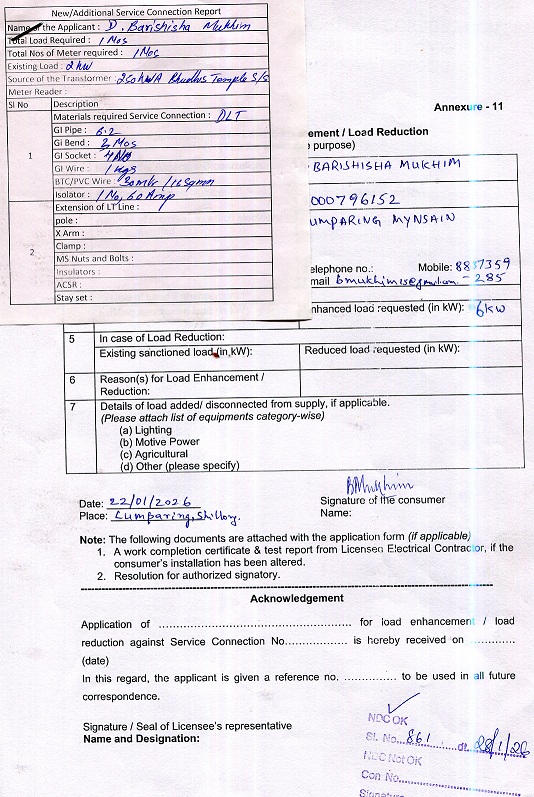 New/Additional Service Connection Report
Name of the Applicant : D. Barishisha Mukhim
Total Load Required : 1 Nos
Total Nos of Meter required : 1 Nos
Existing Load : 2 kw
Source of the Transformer : 250 kVA Temple S/S
Meter Reader :
Sl No Description
Materials required Service Connection : DLT
1
GI Pipe : 6.2
GI Bend : 2 Nos
GI Socket : 4 Nos
GI Wire : 1 kgs
BTC/PVC Wire : 30mtr / 16 sqmm
Isolator : 1 No, 60 Amp
2
Extension of LT Line :
pole :
X Arm :
Clamp :
MS Nuts and Bolts :
Insulators :
ACSR :
Stay set :
Annexure - 11
ement / Load Reduction
purpose)
BARISHISHA MUKHIM
000796152
UMPARING MYNSAIN
elephone no.: Mobile: 8837359
285
mail
nhanced load requested (in kW): 6kw
5 In case of Load Reduction:
Existing sanctioned load (in kW): Reduced load requested (in kW):
6 Reason(s) for Load Enhancement /
Reduction:
7 Details of load added/ disconnected from supply, if applicable.
(Please attach list of equipments category-wise)
(a) Lighting
(b) Motive Power
(c) Agricultural
(d) Other (please specify)
BMukhim
Date: 22/01/2026 Signature of the consumer
Place: Lumparing, Shillong. Name:
Note: The following documents are attached with the application form (if applicable)
1. A work completion certificate & test report from Licensed Electrical Contractor, if the
consumer's installation has been altered.
2. Resolution for authorized signatory.
Acknowledgement
Application of ........................................ for load enhancement / load
reduction against Service Connection No................... is hereby received on .............
(date)
In this regard, the applicant is given a reference no. ............... to be used in all future
correspondence.
Signature / Seal of Licensee's representative
Name and Designation:
NDC OK
Sl. No...861......dt. 28/1/26
NDC Not OK
Con No.......................
Signature